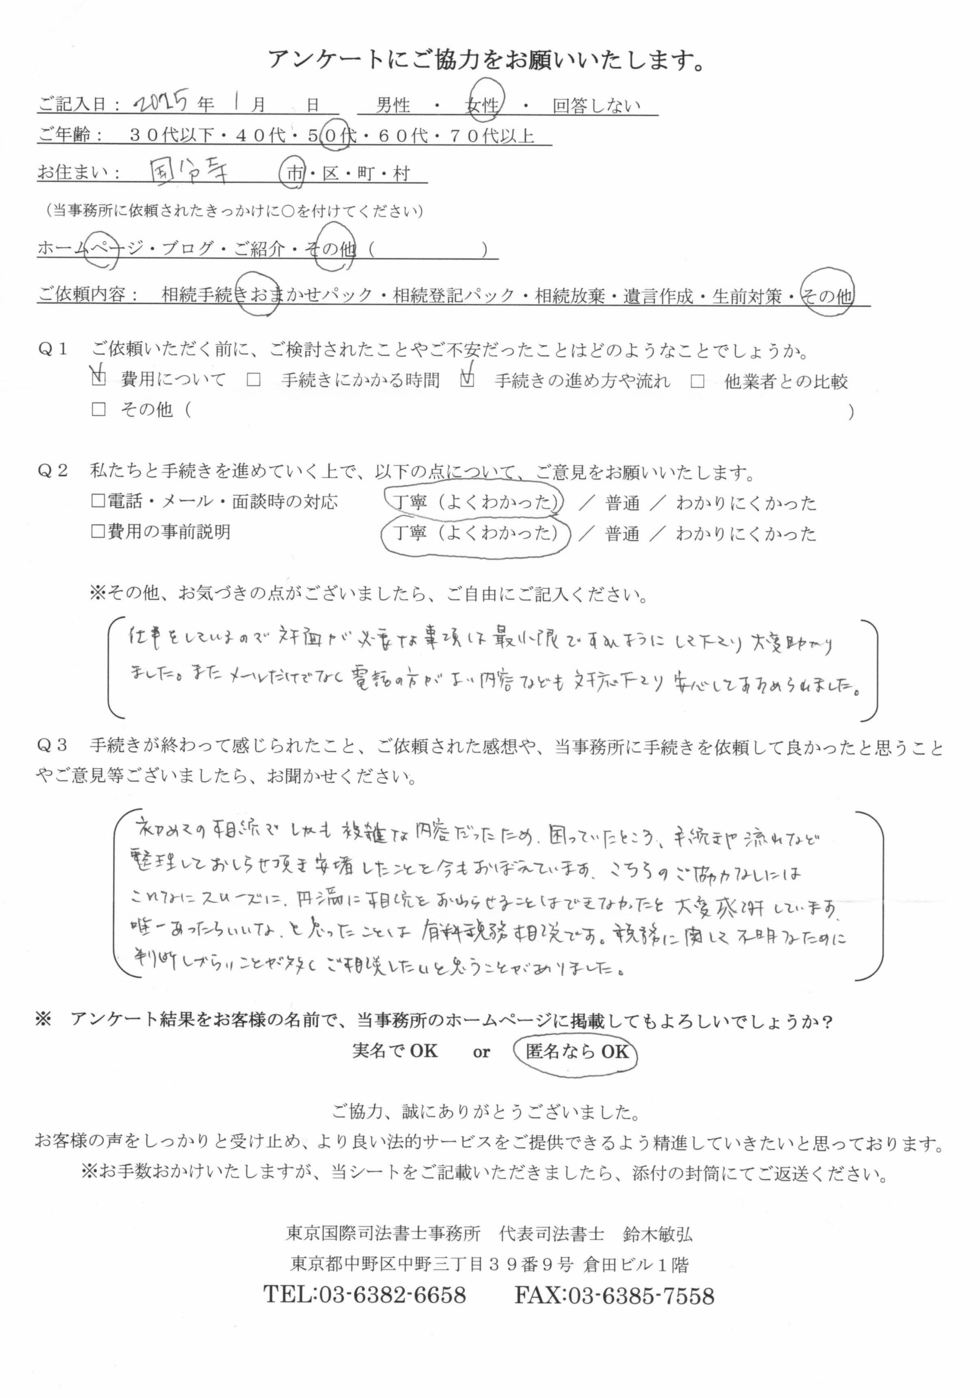 アンケートにご協力をお願いいたします。
ご記入日： 2025 年 1 月 日 男性 ・ 女性 ・ 回答しない
ご年齢： ３０代以下・４０代・５０代・６０代・７０代以上
お住まい： 国分寺 市・区・町・村
（当事務所に依頼されたきっかけに○を付けてください）
ホームページ・ブログ・ご紹介・その他（ ）
ご依頼内容： 相続手続きおまかせパック・相続登記パック・相続放棄・遺言作成・生前対策・その他
Ｑ１ ご依頼いただく前に、ご検討されたことやご不安だったことはどのようなことでしょうか。
☑ 費用について □ 手続きにかかる時間 ☑ 手続きの進め方や流れ □ 他業者との比較
□ その他（ ）
Ｑ２ 私たちと手続きを進めていく上で、以下の点について、ご意見をお願いいたします。
□電話・メール・面談時の対応 丁寧（よくわかった） ／ 普通 ／ わかりにくかった
□費用の事前説明 丁寧（よくわかった） ／ 普通 ／ わかりにくかった
※その他、お気づきの点がございましたら、ご自由にご記入ください。
仕事をしているので対面が必要な事項は最小限ですむようにして下さり大変助かり
ました。またメールだけでなく電話の方がよい内容なども対応下さり安心してすすめられました。
Ｑ３ 手続きが終わって感じられたこと、ご依頼された感想や、当事務所に手続きを依頼して良かったと思うこと
やご意見等ございましたら、お聞かせください。
初めての相続でしかも複雑な内容だったため、困っていたところ、手続きや流れなど
整理しておしらせ頂き安堵したことを今もおぼえています。こちらのご協力なしには
これなにスムーズに、円満に相続をおわらせることはできなかったと大変感謝しています。
唯一あったらいいな、と思ったことは有料税務相談です。税務に関して不明なために
判断しづらいことが多くご相談したいと思うことがありました。
※ アンケート結果をお客様の名前で、当事務所のホームページに掲載してもよろしいでしょうか？
実名で OK or 匿名なら OK
ご協力、誠にありがとうございました。
お客様の声をしっかりと受け止め、より良い法的サービスをご提供できるよう精進していきたいと思っております。
※お手数おかけいたしますが、当シートをご記載いただきましたら、添付の封筒にてご返送ください。
東京国際司法書士事務所 代表司法書士 鈴木敏弘
東京都中野区中野三丁目３９番９号 倉田ビル１階
TEL:03-6382-6658 FAX:03-6385-7558